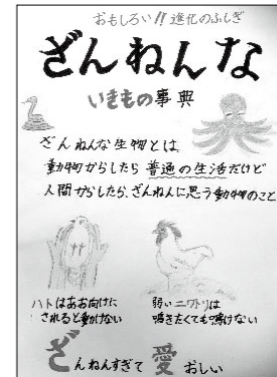 おもしろい!! 進化のふしぎ
ざんねんな
いきもの事典
ざんねんな生物とは、
動物からしたら普通の生活だけど
人間からしたら、ざんねんに思う動物のこと
ハトはあお向けに
されると動けない
弱いニワトリは
鳴きたくても鳴けない
ざんねんすぎて愛おしい